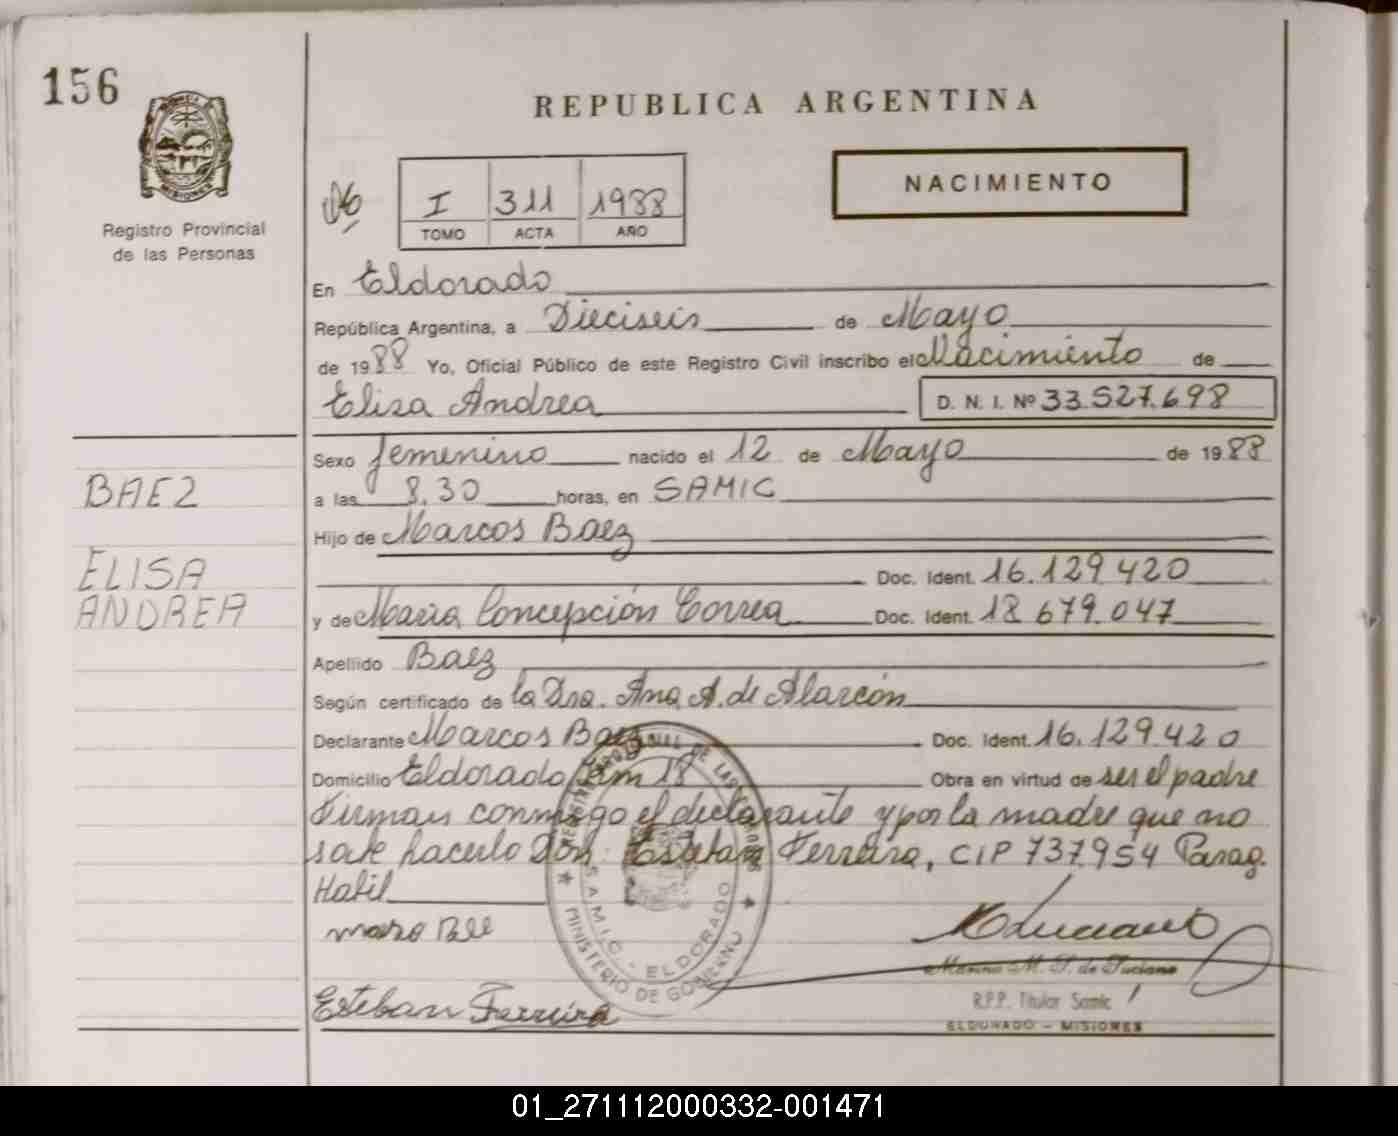 156
REPUBLICA ARGENTINA
NACIMIENTO
MISIONES
Registro Provincial
de las Personas
I 311 1988
TOMO ACTA AÑO
En Eldorado
República Argentina, a Dieciseis de Mayo
de 1988 Yo, Oficial Público de este Registro Civil inscribo el Nacimiento de
Elisa Andrea D. N. I. Nº 33.527.698
Sexo femenino nacido el 12 de Mayo de 1988
BAEZ
a las 8,30 horas, en SAMIC
Hijo de Marcos Baez
ELISA
Doc. Ident. 16.129.420
ANDREA
y de Maria Concepción Correa Doc. Ident. 18.679.047
Apellido Baez
Según certificado de la Dra. Ana A. de Alarcón
Declarante Marcos Baez Doc. Ident. 16.129.420
Domicilio Eldorado Km 18 Obra en virtud de ser el padre
Firman conmigo el declarante y por la madre que no
sabe hacerlo Don Esteban Ferreira, CIP 737.954 Parag.
Habil
S.A.M.I.C. - ELDORADO
MINISTERIO DE GOBIERNO
Esteban Ferreira
R.P.P. Titular Samic
ELDORADO - MISIONES
01_271112000332-001471